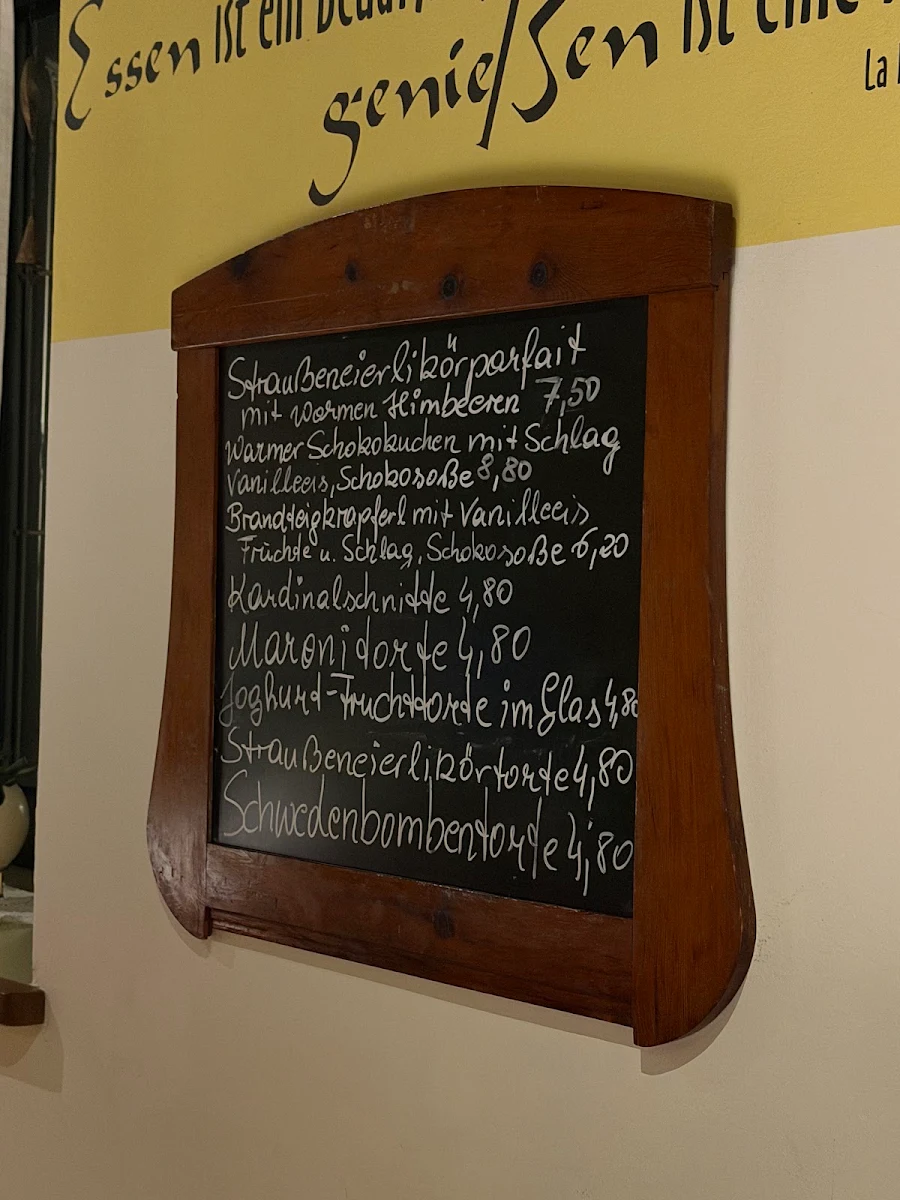 Essen ist ein
genießen ist eine
La
Straußeneierlikörparfait
mit warmen Himbeeren 7,50
Warmer Schokokuchen mit Schlag
Vanilleeis, Schokosoße 8,80
Brandteigkrapferl mit Vanilleeis
Früchte u. Schlag, Schokosoße 6,20
Kardinalschnitte 4,80
Maronitorte 4,80
Joghurt-Fruchttorte im Glas 4,80
Straußeneierlikörtorte 4,80
Schwedenbombentorte 4,80